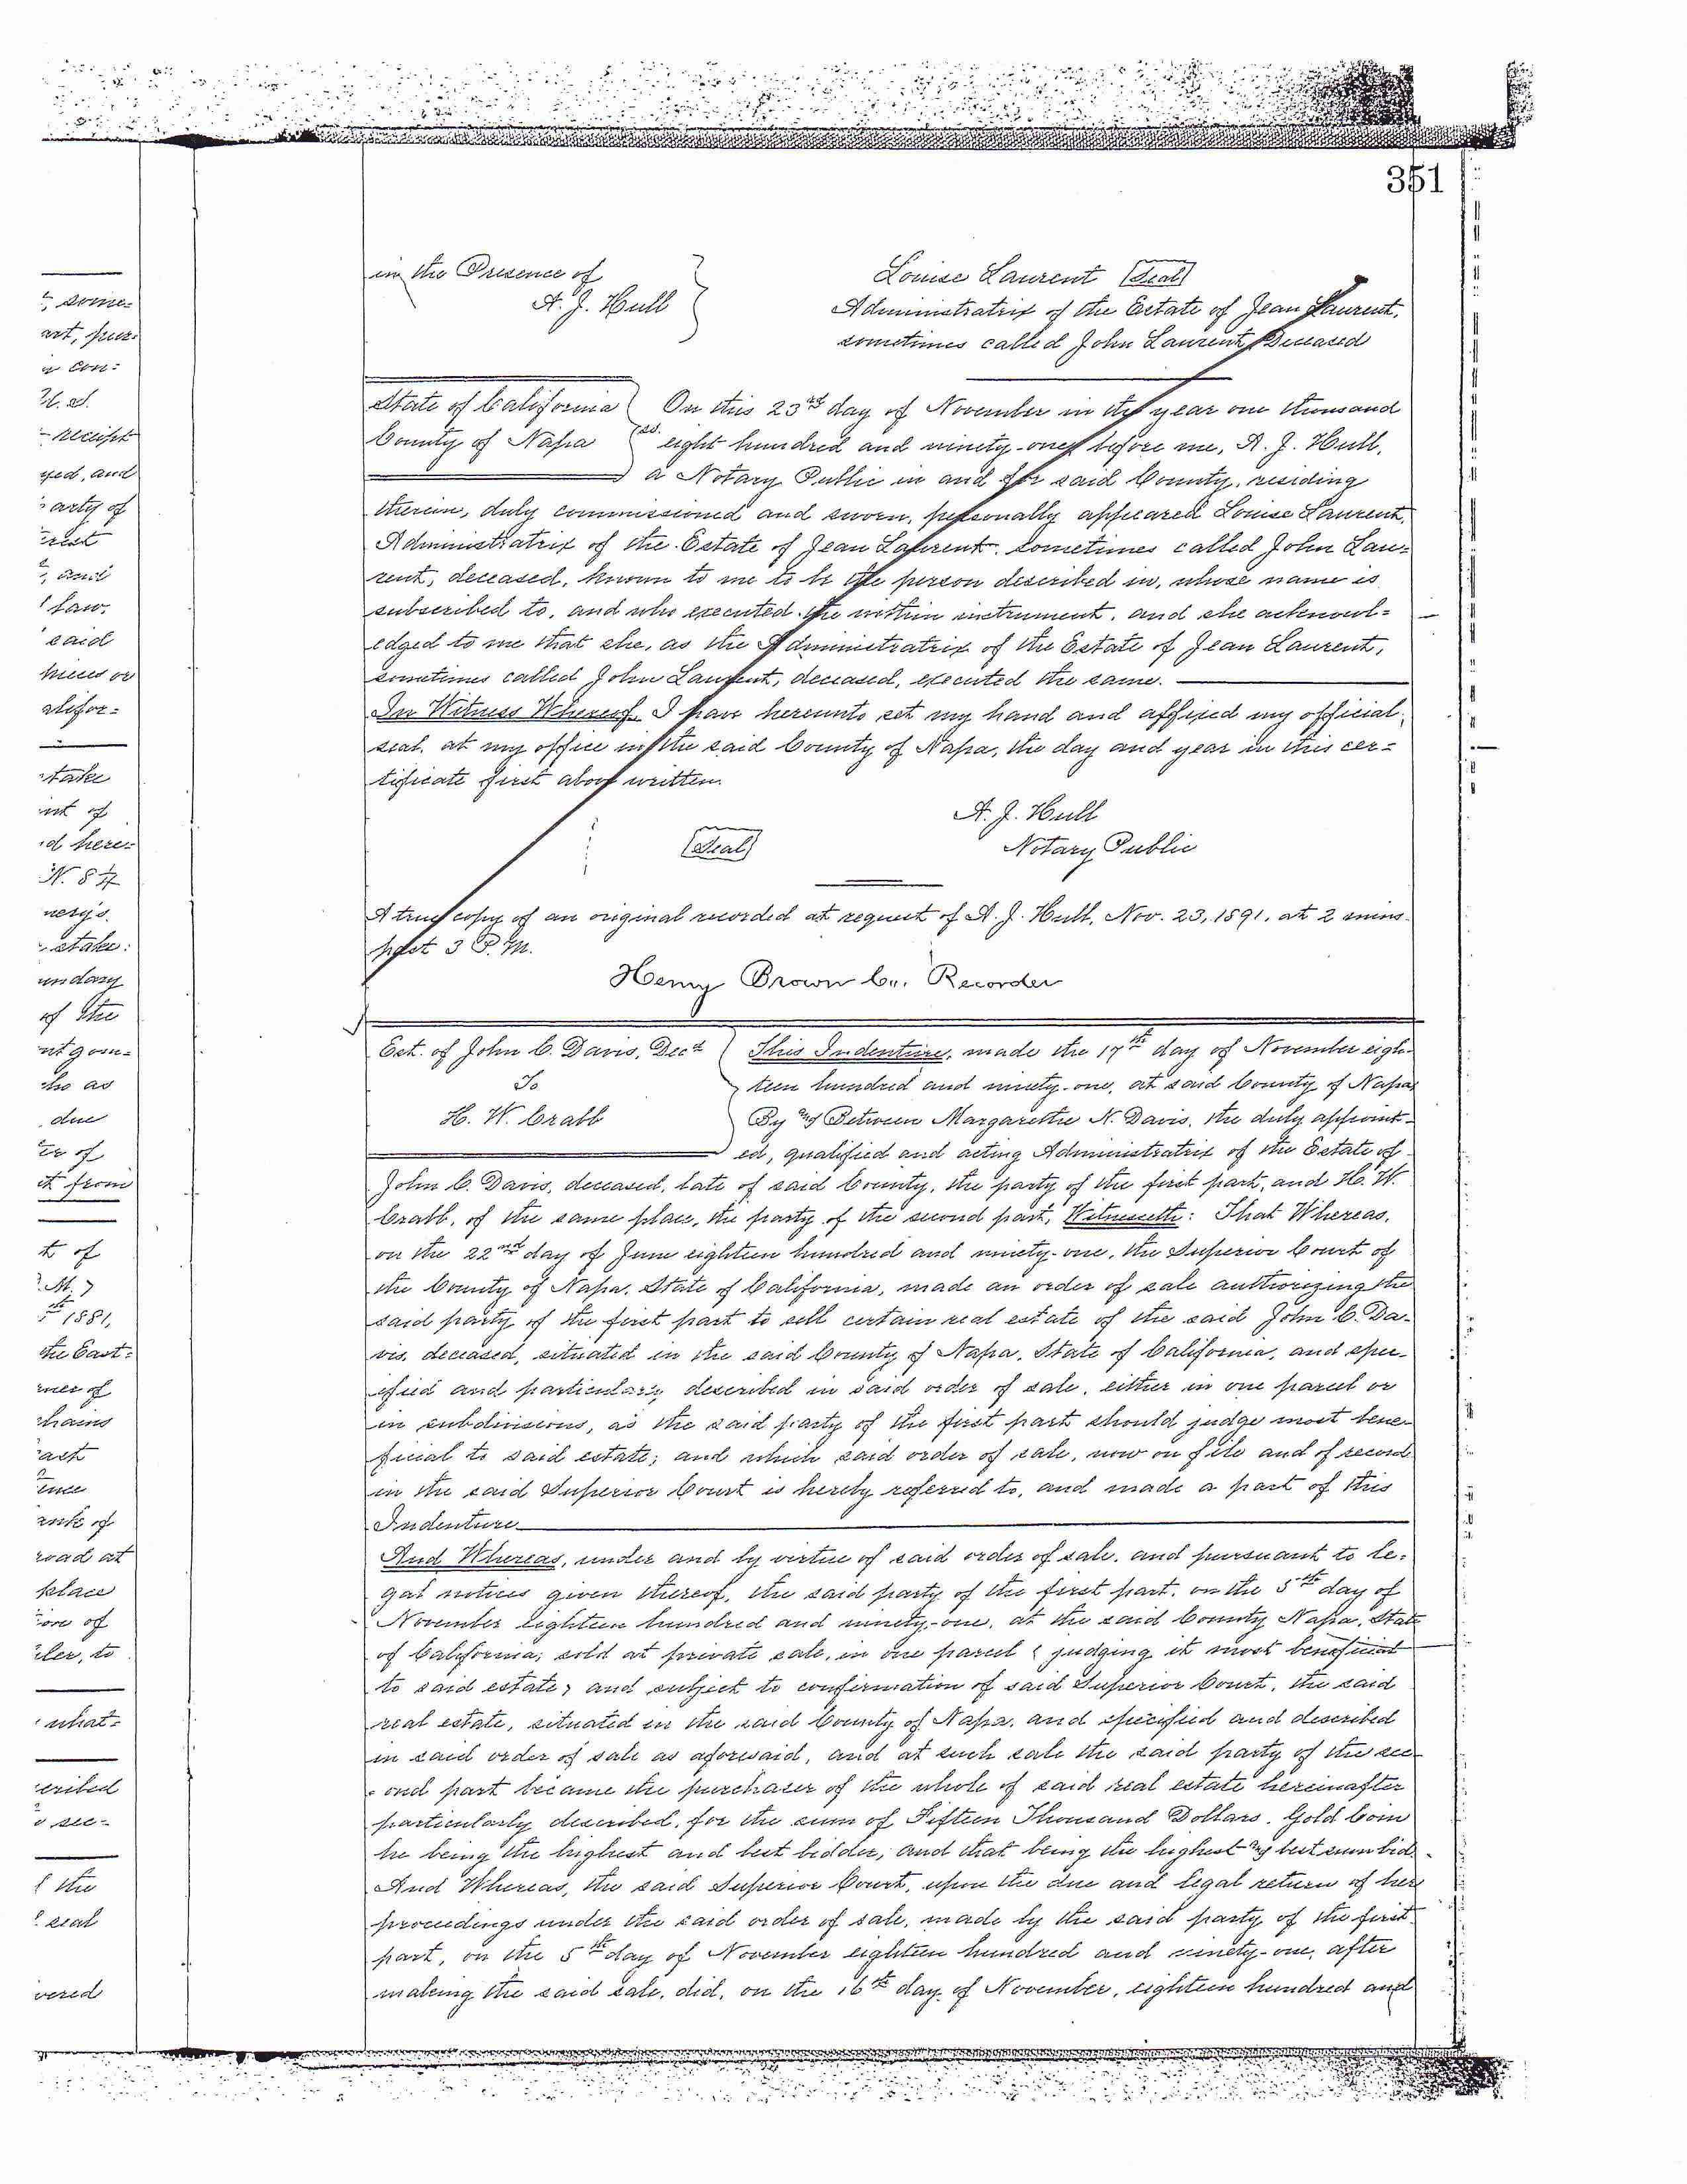 351
in the Presence of
A. J. Hull
Louise Laurent [Seal]
Administratrix of the Estate of Jean Laurent,
sometimes called John Laurent, Deceased
State of California
County of Napa
ss.
On this 23rd day of November in the year one thousand
eight hundred and ninety-one, before me, A. J. Hull,
a Notary Public in and for said County, residing
therein, duly commissioned and sworn, personally appeared Louise Laurent,
Administratrix of the Estate of Jean Laurent, sometimes called John Lau=
rent, deceased, known to me to be the person described in, whose name is
subscribed to, and who executed the within instrument, and she acknowl=
edged to me that she, as the Administratrix of the Estate of Jean Laurent,
sometimes called John Laurent, deceased, executed the same.
In Witness Whereof, I have hereunto set my hand and affixed my official
seal, at my office in the said County of Napa, the day and year in this cer=
tificate first above written.
A. J. Hull
[Seal] Notary Public
A true copy of an original recorded at request of A. J. Hull, Nov. 23, 1891, at 2 mins.
past 3 P.M.
Henry Brown Co. Recorder
Est. of John C. Davis, Decd
To
H. W. Crabb
This Indenture, made the 17th day of November eigh-
teen hundred and ninety-one, at said County of Napa
By and Between Margarethe N. Davis, the duly appoint-
ed, qualified and acting Administratrix of the Estate of
John C. Davis, deceased, late of said County, the party of the first part, and H. W.
Crabb, of the same place, the party of the second part, Witnesseth: That Whereas,
on the 22nd day of June eighteen hundred and ninety-one, the Superior Court of
the County of Napa, State of California, made an order of sale authorizing the
said party of the first part to sell certain real estate of the said John C. Da-
vis, deceased, situated in the said County of Napa, State of California, and spec-
ified and particularly described in said order of sale, either in one parcel or
in subdivisions, as the said party of the first part should judge most bene-
ficial to said estate; and which said order of sale, now on file and of record
in the said Superior Court is hereby referred to, and made a part of this
Indenture
And Whereas, under and by virtue of said order of sale, and pursuant to le-
gal notices given thereof, the said party of the first part, on the 5th day of
November eighteen hundred and ninety-one, at the said County Napa, State
of California, sold at private sale, in one parcel ( judging it most beneficial
to said estate) and subject to confirmation of said Superior Court, the said
real estate, situated in the said County of Napa, and specified and described
in said order of sale as aforesaid, and at such sale the said party of the sec-
ond part became the purchaser of the whole of said real estate hereinafter
particularly described, for the sum of Fifteen Thousand Dollars, Gold Coin
he being the highest and best bidder, and that being the highest and best sum bid.
And Whereas, the said Superior Court, upon the due and legal return of her
proceedings under the said order of sale, made by the said party of the first
part, on the 5th day of November eighteen hundred and ninety-one, after
making the said sale, did, on the 16th day of November, eighteen hundred and